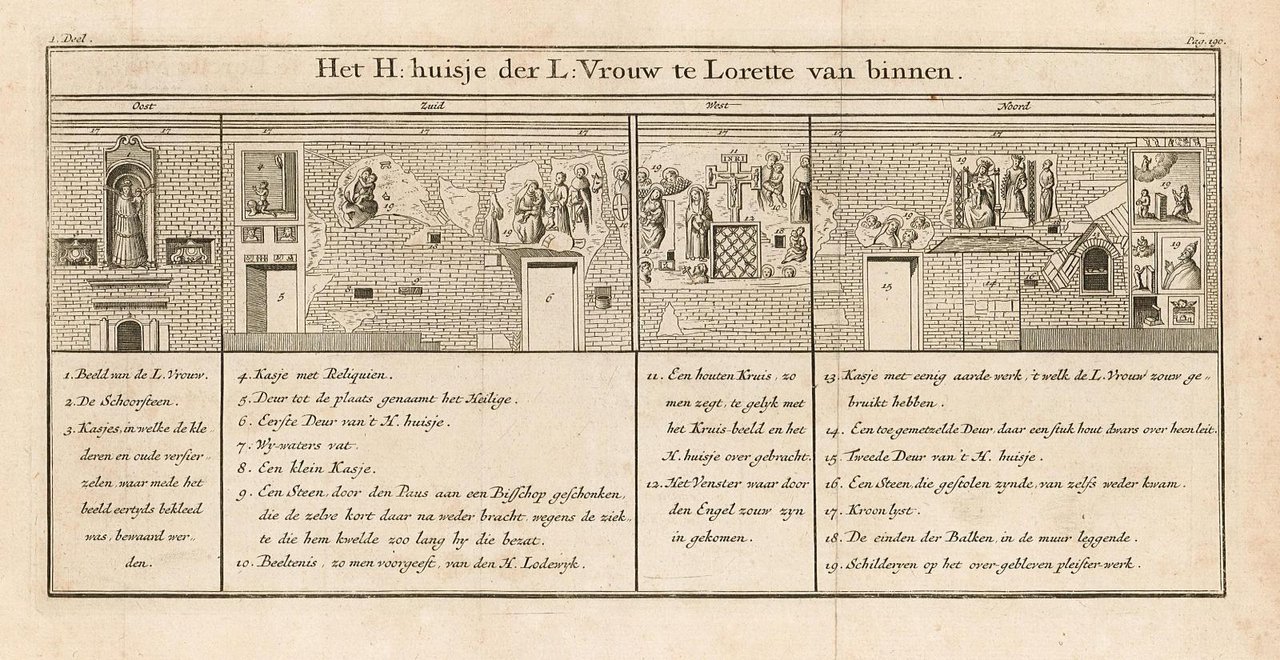 1. Deel.
Pag. 190.
Het H: huisje der L: Vrouw te Lorette van binnen.
Oost
Zuid
West
Noord
17 17 17 17 17 17 17 17
1
4
19
5
6
11
INRI
12
19
19
15
14
19
19
1. Beeld van de L. Vrouw.
2. De Schoorsteen.
3. Kasjes, in welke de kle„
deren en oude versier„
zelen, waar mede het
beeld eertyds bekleed
was, bewaard wer„
den.
4. Kasje met Reliquien.
5. Deur tot de plaats genaamt het Heilige.
6. Eerste Deur van't H. huisje.
7. Wy-waters vat.
8. Een klein Kasje.
9. Een Steen, door den Paus aan een Bisschop geschonken,
die de zelve kort daar na weder bracht, wegens de ziek„
te die hem kwelde zoo lang hy die bezat.
10. Beeltenis, zo men voorgeeft, van den H. Lodewyk.
11. Een houten Kruis, zo
men zegt, te gelyk met
het Kruis-beeld en het
H. huisje over gebracht.
12. Het Venster waar door
den Engel zouw zyn
in gekomen.
13. Kasje met eenig aarde-werk, 't welk de L. Vrouw zouw ge„
bruikt hebben.
14. Een toe gemetzelde Deur, daar een stuk hout dwars over heen leit.
15. Tweede Deur van't H. huisje.
16. Een Steen, die gestolen zynde, van zelfs weder kwam.
17. Kroon lyst.
18. De einden der Balken, in de muur leggende.
19. Schilderyen op het over-gebleven pleister-werk.